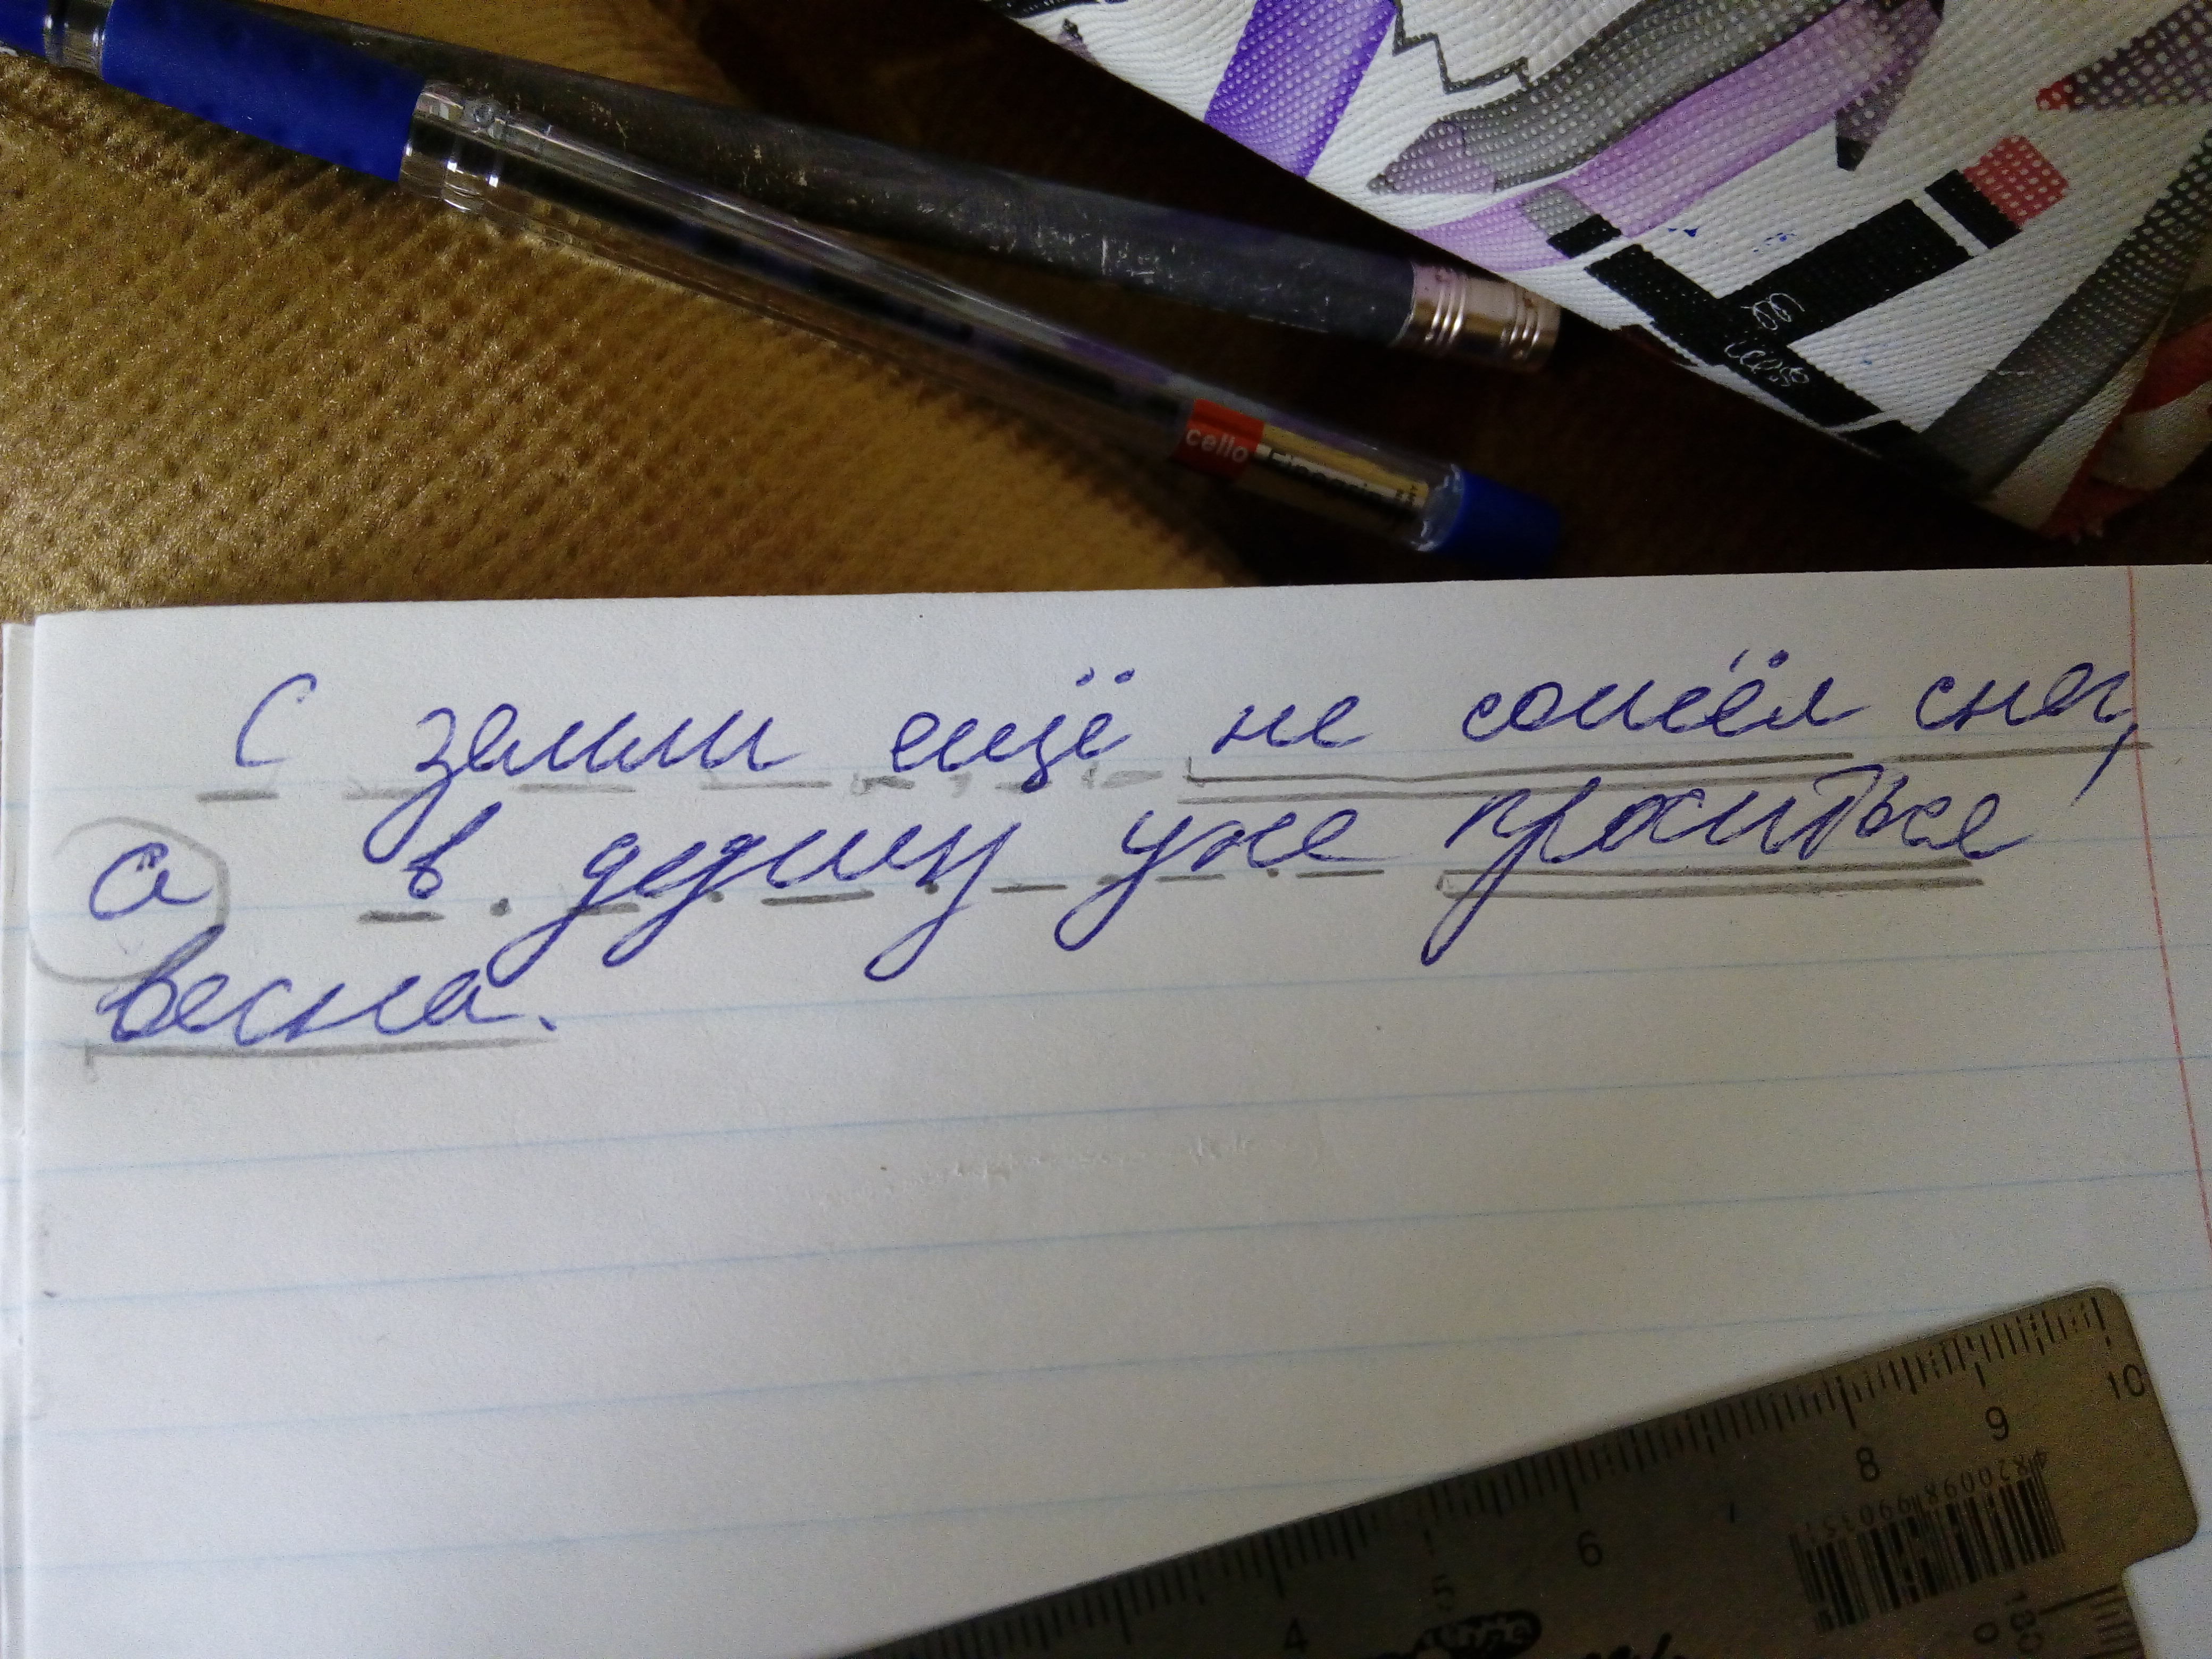 cello Finegrip
С земли ещё не сошёл снег,
а в душу уже проситься
весна.
10
9
8
6
5
4
180
0